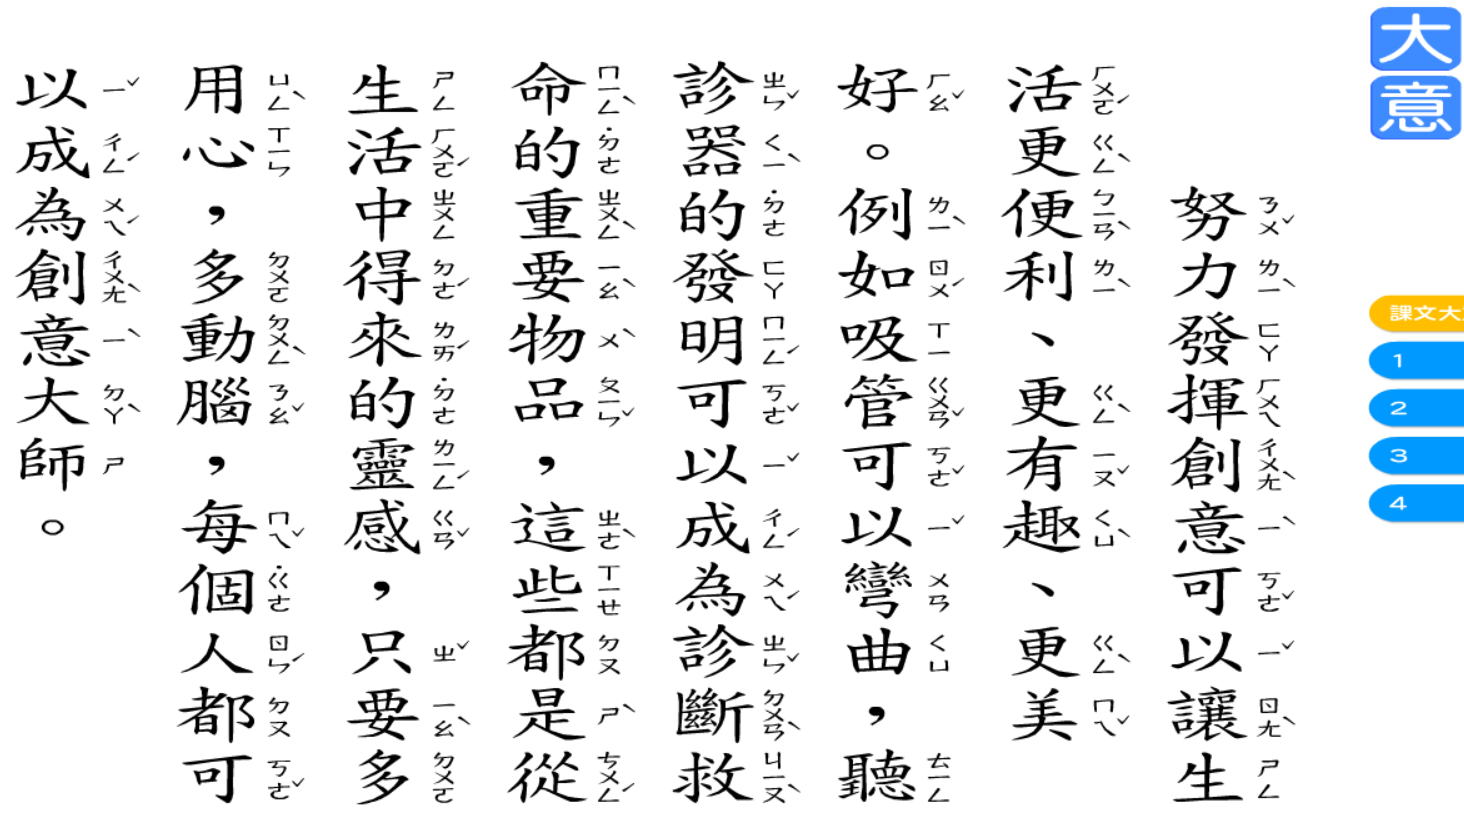 大意
努力發揮創意可以讓生
活更便利、更有趣、更美
好。例如吸管可以彎曲，聽
診器的發明可以成為診斷救
命的重要物品，這些都是從
生活中得來的靈感，只要多
用心，多動腦，每個人都可
以成為創意大師。
課文大
1
2
3
4